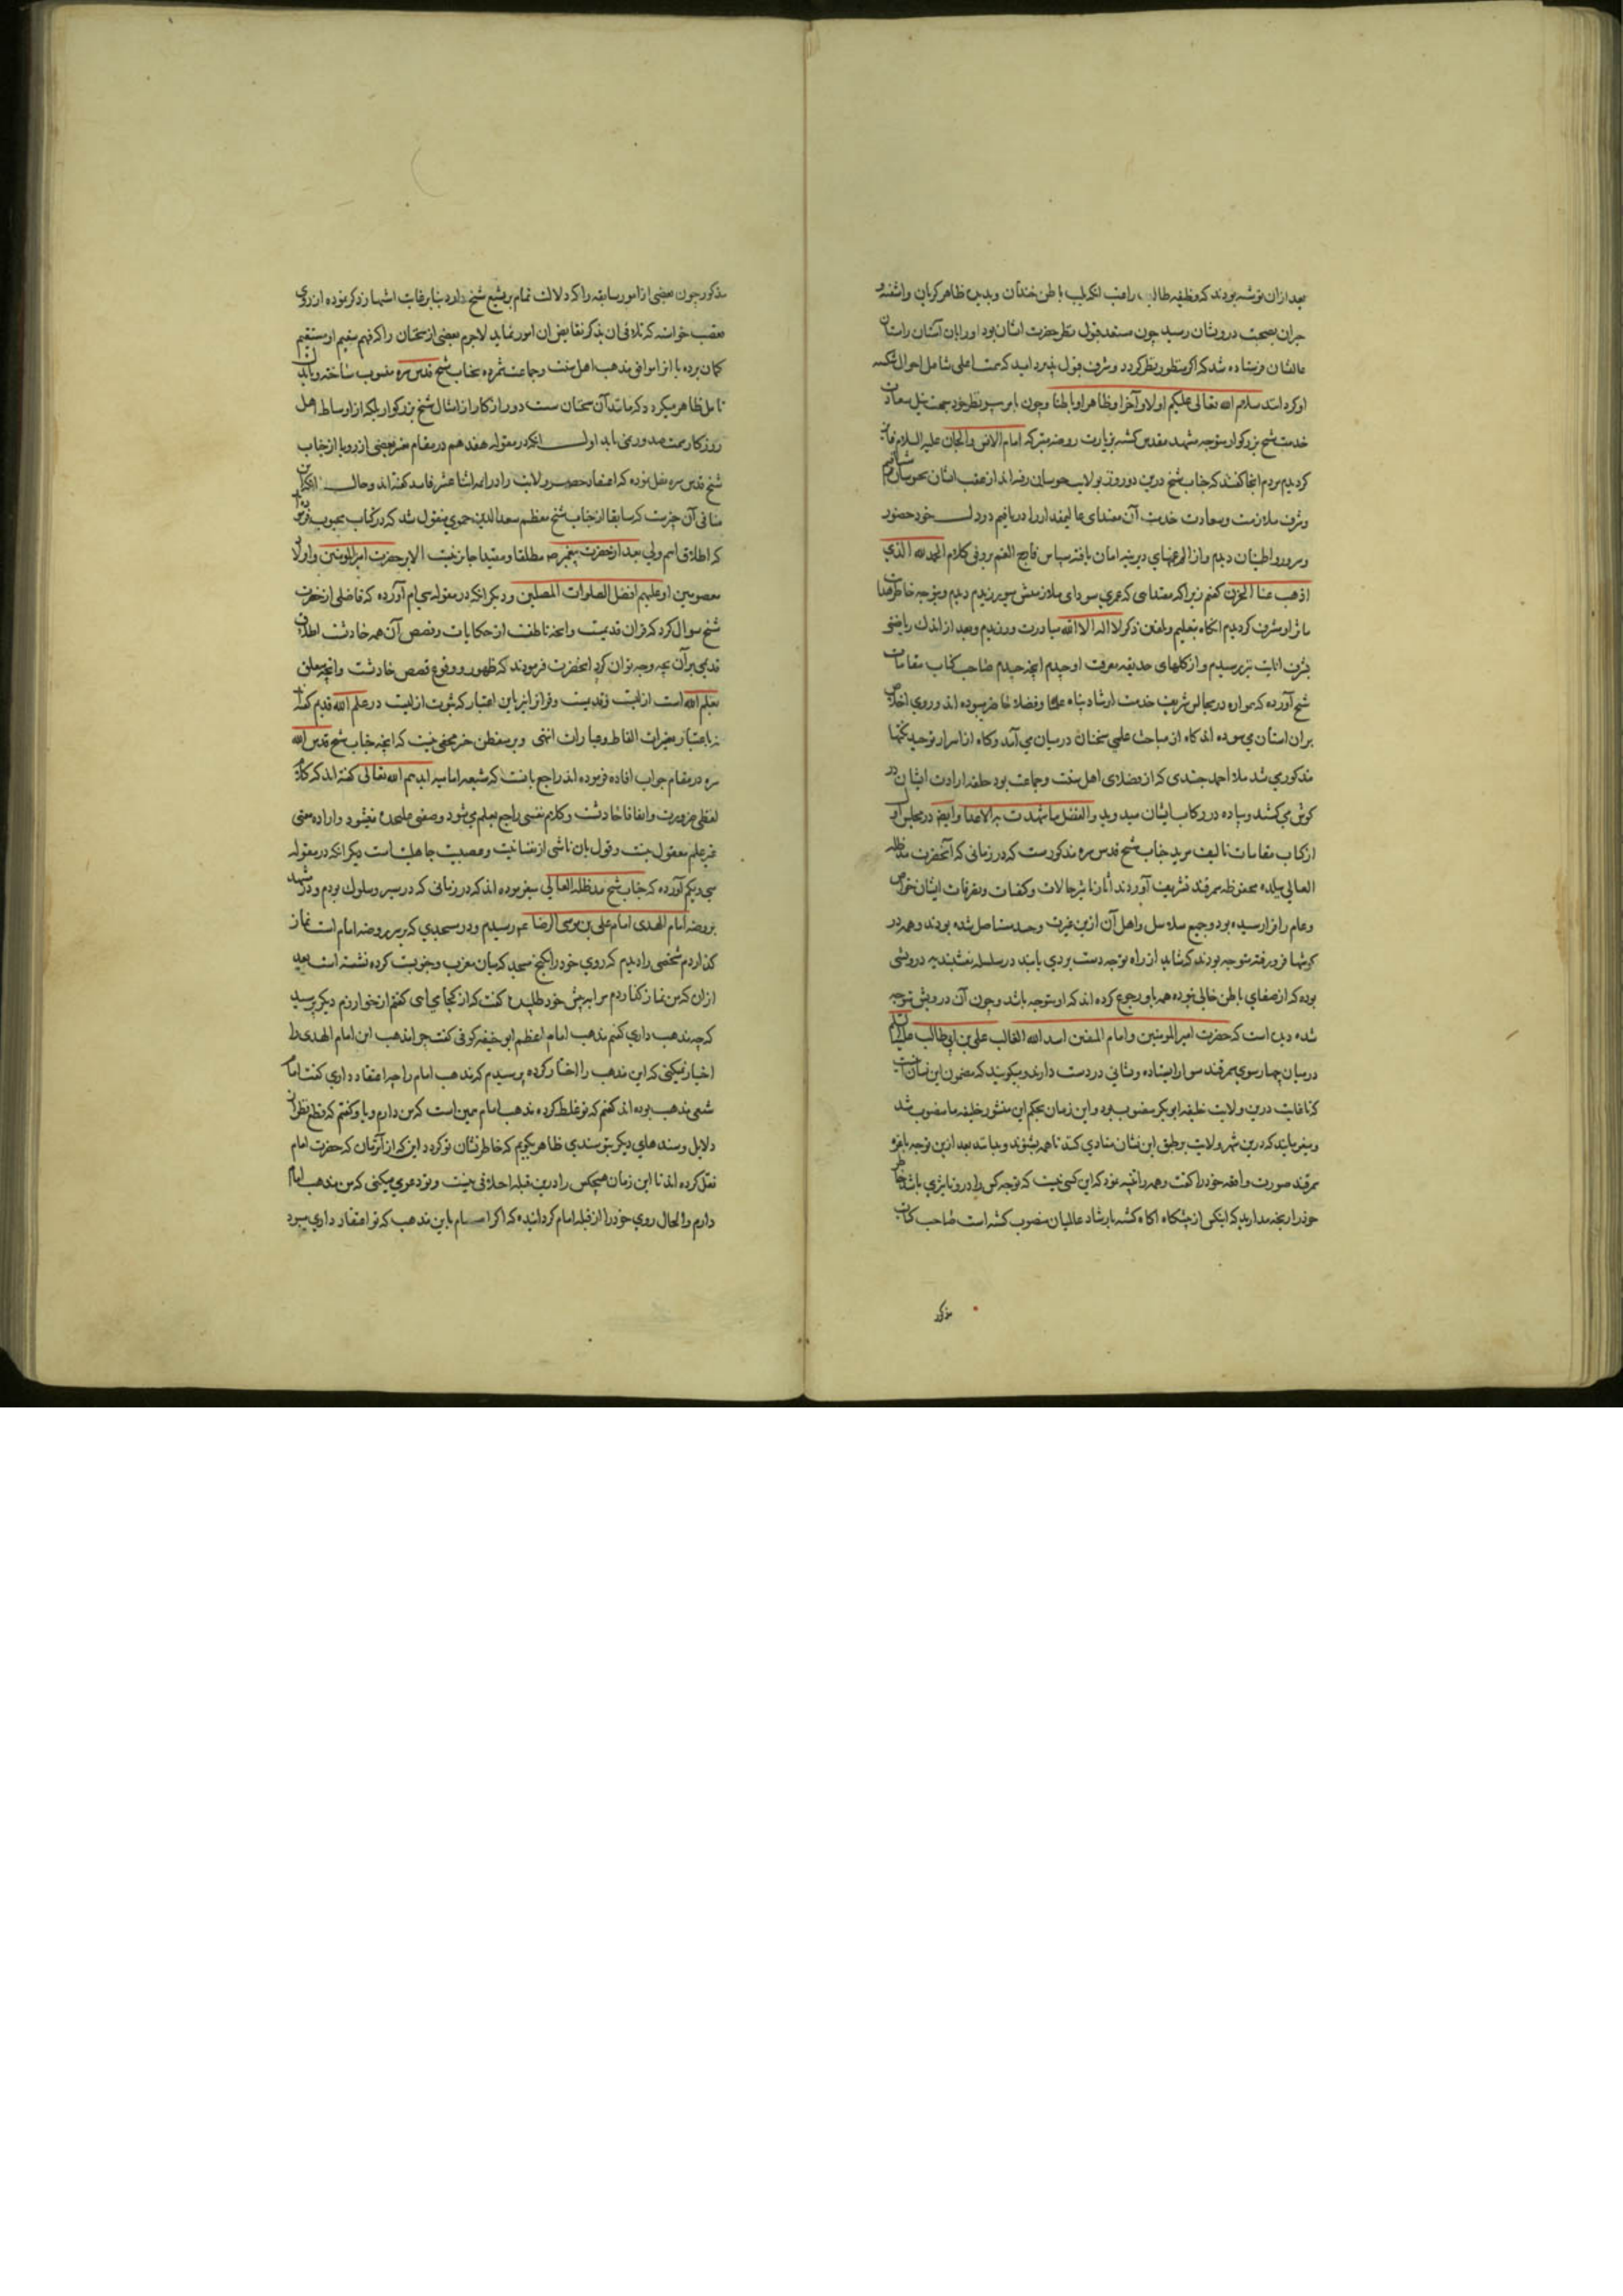 بعد از آن نوشته بودند که وظیفه طالب راغب آنکه لب باطن خندان و بدیده ظاهر گریان و آشفته و
حیران بصحبت درویشان رسید چون مستعد قبول نظر حضرت ایشان بود او را بآن آستان
عالیشان فرستاده شد که اگر منظور نظر گردد و شرف قبول پذیرد امید که شامل احوال شکسته
او گردانند سلام الله تعالی علیکم اولا و آخرا و ظاهرا و باطنا و چون
خدمت شیخ بزرگوار متوجه مشهد مقدس گشته بزیارت روضه متبرکه امام الانس و الجان علیه السلام
کردیم مردم آنجا گفتند که جناب شیخ درین دو روز بولایت رفته‌اند از عقب ایشان
و شرف ملازمت و سعادت خدمت آن مقتدای را دریافتیم در دل خود حضور
و سرور و اطمینان دیدیم و از الم غمهای دیرینه امان یافته سپاس فارج الغم بر وفق کلام الحمد لله الذی
اذهب عنا الحزن گفتم زیرا که مقتدایی که عمری سودای ملازمتش میورزیدیم دیدیم و بتوجه خاطر
مشرف گردیدیم آنگاه بتعلیم و تلقین ذکر لا اله الا الله مبادرت ورزیدیم و بعد از اندک ریاضتی
بشرف انابت نیز رسیدیم و از گلهای حدیقه معرفت او چیدیم آنچه چیدیم صاحب کتاب مقامات
شیخ آورده که همواره در مجالس شریف خدمت ارشاد پناه علما و فضلا حاضر میبوده‌اند و روی اخلاص
بر آن آستان می‌سوده‌اند گاه از مباحث علمی سخنان در میان می‌آمد و گاه از اسرار توحید نکتها
مذکور می‌شد ملا احمد جندی که از فضلای اهل سنت و جماعت بود حلقه ارادت ایشان در
گوش می‌کشد و پیاده در رکاب ایشان میدوید و الفضل ما شهدت به الاعدا و ایضا در مجلس
از کتاب مقامات تالیف مرید جناب شیخ قدس سره مذکورست که در زمانی که آنحضرت مد ظله
العالی ببلده محفوظه سمرقند تشریف آوردند آثار تاثیر حالات و کیفیات و تصرفات ایشان خواص
و عام را فرا رسیده بود و جمیع سلاسل و اهل آن ازین غیرت و حسد متاصل شده بودند و همه در
گوشها فرو رفته متوجه بودند که شاید از راه توجه دست بردی یابند در سلسله نقشبندیه درویشی
بوده که از صفای باطن خالی نبوده همه باو رجوع کرده‌اند که او متوجه باشد و چون آن درویش متوجه
شده دیده است که حضرت امیر المومنین و امام المتقین اسد الله الغالب علی بن ابی طالب علیه السلام
در میان چهارسوی سمرقند سوار ایستاده و نشانی در دست دارند و میگویند که مضمون این نشان آنست
که تا غایت درین ولایت خلیفه ابوبکر منصوب بود و این زمان بحکم این منشور خلیفه ما منصوب شد
و میفرمایند که درین شهر ولایت بر طبق این نشان منادی کنند تا همه بشنوند و بدانند بعد ازین توجه
سمرقند صورت واقعه خود را گفت و همه را تنبیه نمود که این کسی نیست که توجه کس را در او تاثیری باشد خاطر
خود را رنجه مدارید که اینکس از پیشگاه آگاه گشته بارشاد عالمیان منصوب گشته است صاحب کتاب
مذکور
مذکور چون بعضی از امور سابقه را که دلالت تمام بر تشیع شیخ دارد بنابر غایت اشتهار ذکر نموده از روی
تعصب خواسته که تلافی آن بذکر نقایض آن امور نماید لاجرم بعضی از سخنان را که فهم سقیم او مستقیم
گمان برده یا از لوافق مذهب اهل سنت و جماعت شمرده بجناب شیخ قدس سره منسوب ساخته و باندک
تامل ظاهر میگردد که مانند آن سخنان سست دور از کار از امثال شیخ بزرگوار بلکه از اوساط اهل
روزگار سمت صدور نمی‌یابد اول آنکه در مقوله هفدهم در مقام بعضی از رویا از جناب
شیخ قدس سره نقل نموده که اعتقاد حصر ولایت را در ائمه اثنا عشر فاسد گفته‌اند و حال آنکه این
منافی آن چیزست که سابقا از جناب شیخ معظم سعد الدین حموی منقول شد که در کتاب محبوب فرموده
که اطلاق اسم ولی بعد از حضرت پیغمبر ص مطلقا و مقیدا جایز نیست الا بر حضرت امیر المومنین و اولاد
معصومین او علیهم افضل الصلوات المصلین و دیگر آنکه در مقوله سی‌ام آورده که فاضلی از حضرت
شیخ سوال کرد که قران قدیمست و آنچه ناطقست از حکایات و قصص آن همه حادثست اطلاق
قدیمی بر آن بچه وجه توان کرد آنحضرت فرمودند که ظهور و وقوع قصص حادثست و آنچه متعلق
بعلم الله است ازلیت و قدیمست و قرآن از نیز باین اعتبار که ثبوت ازلیت در علم الله قدیم گفته
نه باعتبار تغیرات الفاظ و عبارات انتهی و بر متفطن خبیر مخفی نیست که آنچه جناب شیخ قدس الله
سره در مقام جواب افاده فرموده‌اند راجع بآنست که شیعه امامیه ایدهم الله تعالی گفته‌اند که کلام
لفظی ضرورت و اتفاقا حادثست و کلام نفسی راجع بعلم می‌شود و صفتی علیحده نمیشود و اراده معنی
غیر علم معقول نیست و قول بآن ناشی از نفسانیت و عصبیت جاهلیت است دیگر آنکه در مقوله
سی و یکم آورده که جناب شیخ مد ظله العالی میفرموده‌اند که در زمانی که در سیر و سلوک بودم و در مشهد
بروضه امام الهدی امام علی بن موسی الرضا ع رسیدم و در مسجدی که بر سر روضه امام است نماز
گذاردم شخصی را دیدم که روی خود را بکنج مسجد که میان مغرب و جنوبست کرده نشسته است بعد
از آن که من نماز گذاردم مرا به پیش خود طلبیده گفت که از کجایی ای گفتم از خوارزم دیگر پرسید
که چه مذهب داری گفتم مذهب امام اعظم ابو حنیفه کوفی گفت چرا مذهب این امام الهدی را
اختیار نمیکنی که این مذهب را اختیار کرده پرسیدم که مذهب امام را چه اعتقاد داری گفت امام
شیعی مذهب بوده‌اند گفتم که تو غلط کرده مذهب امام همین است که من دارم و باو گفتم که قطع نظر از
دلایل و سندهای دیگر بتو سندی ظاهر بگویم که خاطر نشان تو گردد این که از آن زمان که حضرت امام
نقل کرده‌اند تا این زمان هیچکس را درین قبله اختلافی نیست و تو دعوی میکنی که من مذهب امام
دارم و الحال روی خود را از قبله امام گردانیده که اگر امام باین مذهب که تو اعتقاد داری میبود